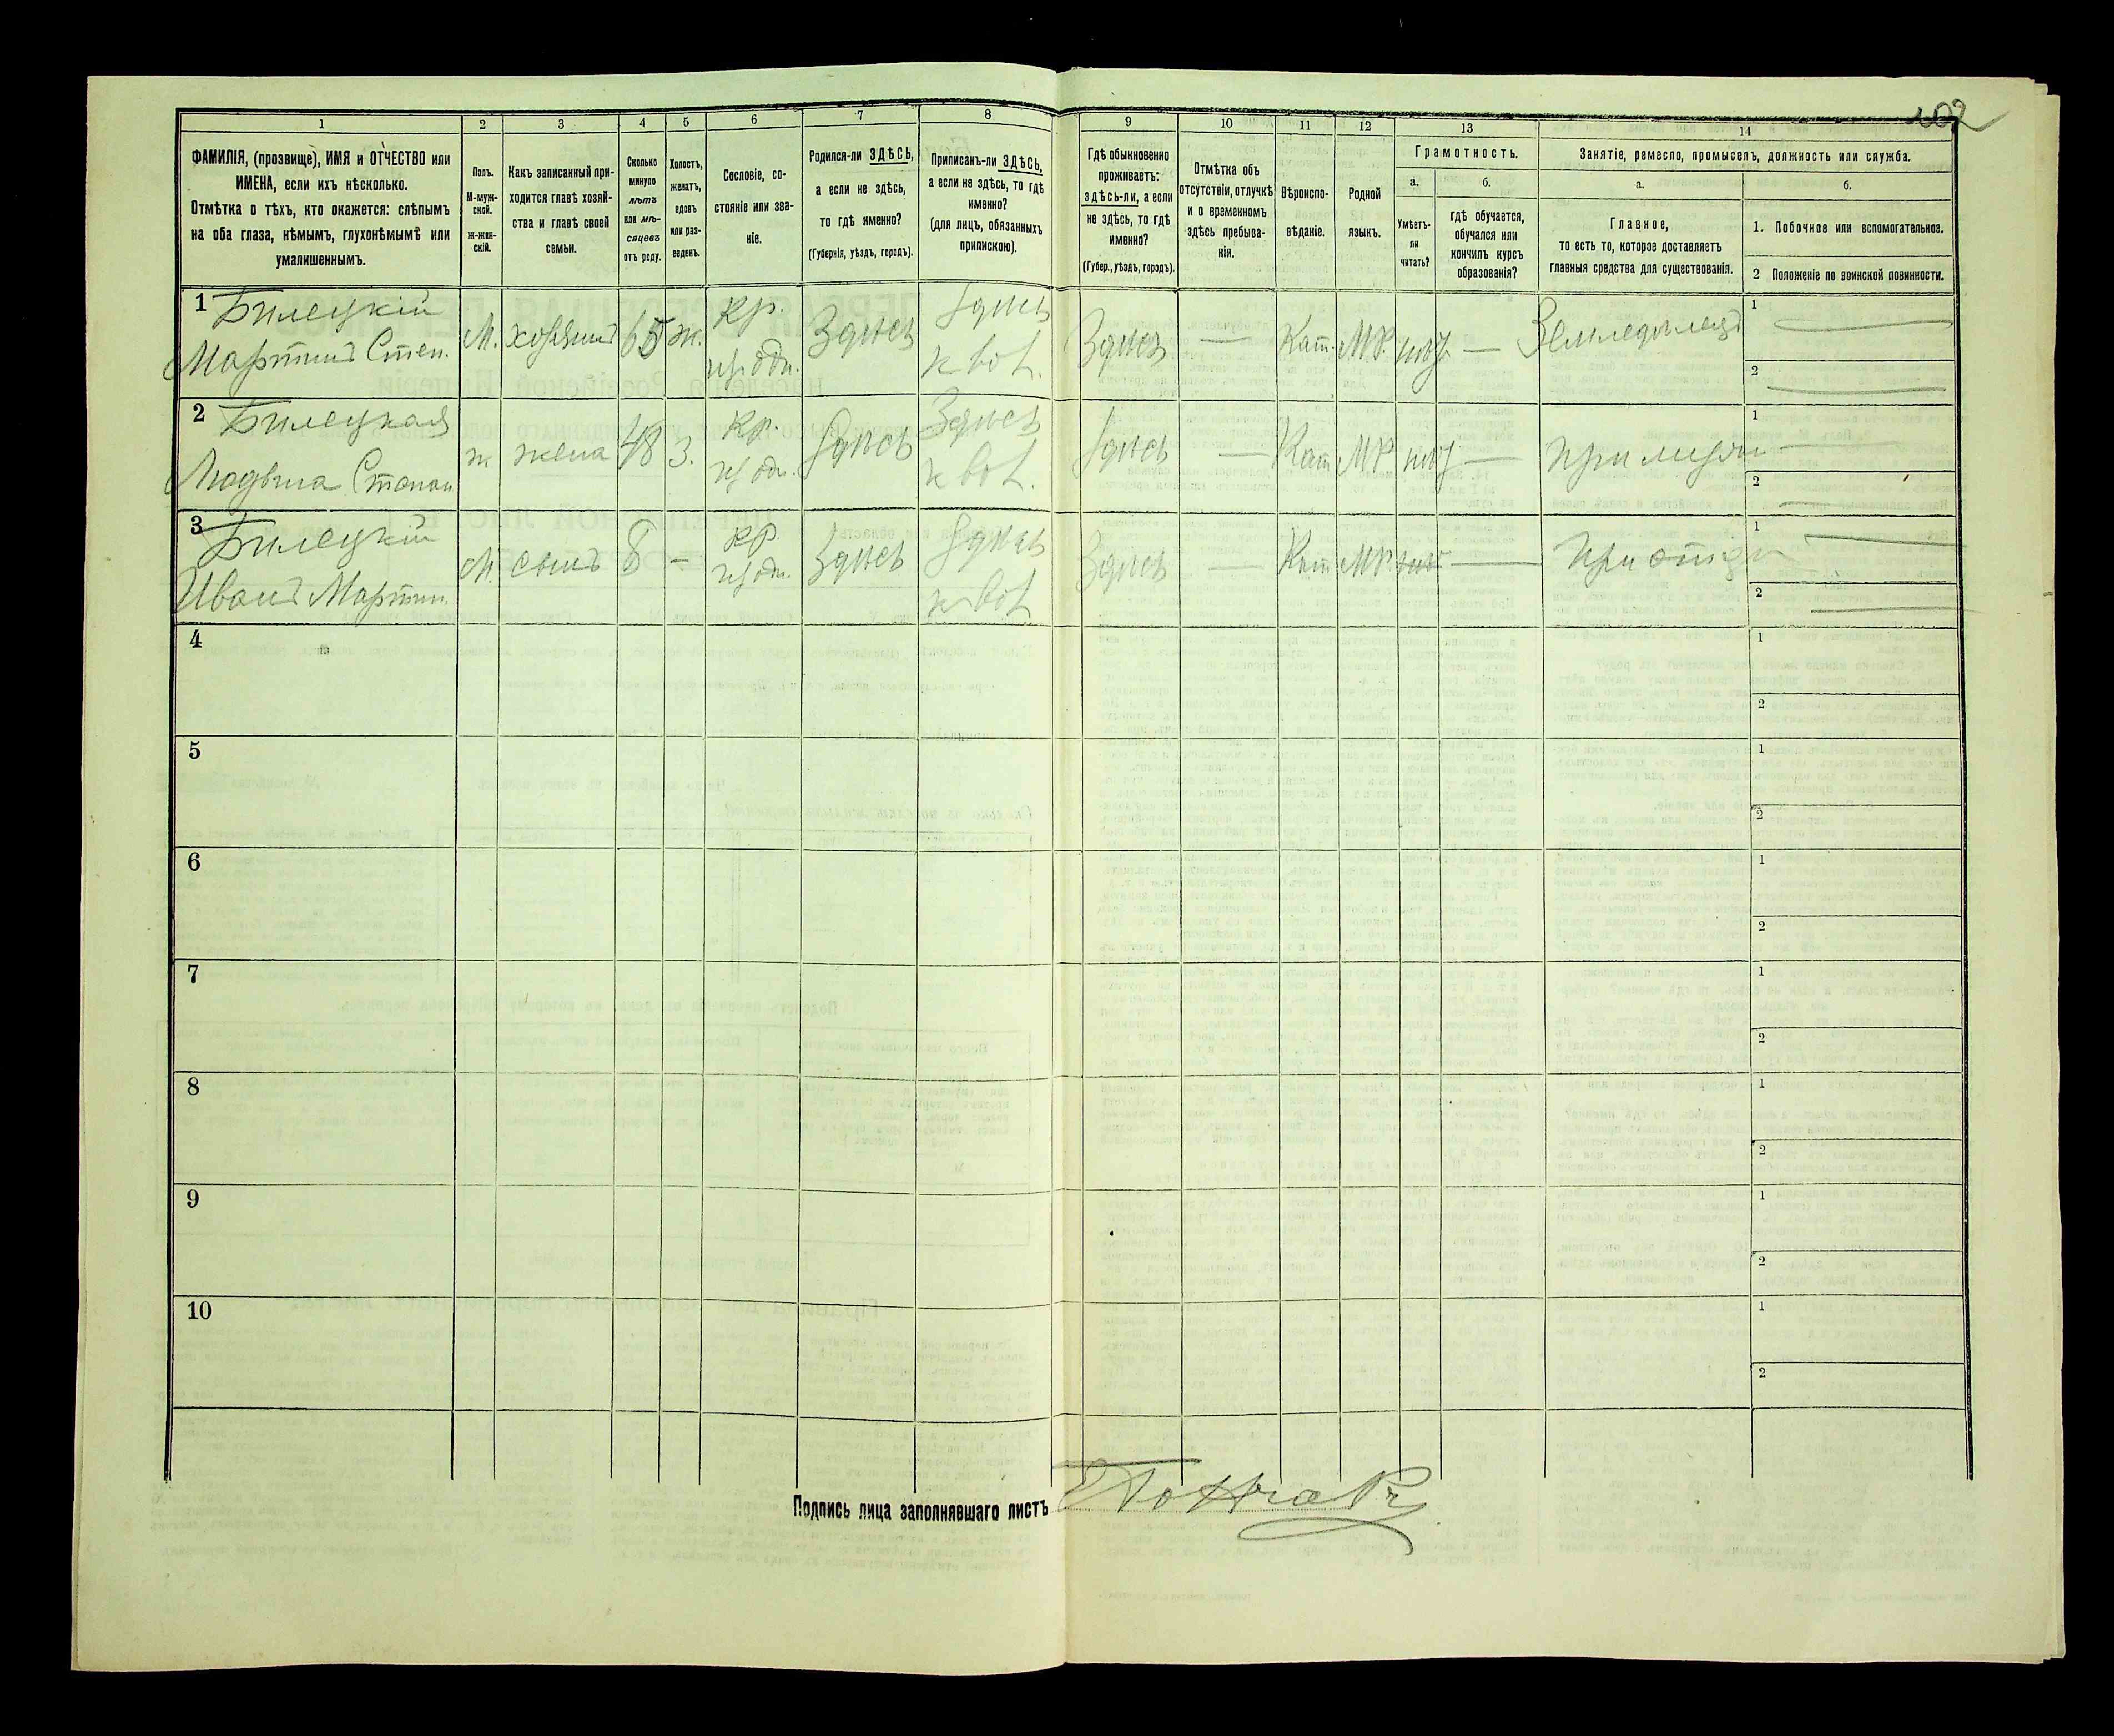 1 2 3 4 5 6 7 8 9 10 11 12 13 14
ФАМИЛІЯ, (прозвище), ИМЯ и ОТЧЕСТВО или
ИМЕНА, если ихъ нѣсколько.
Отмѣтка о тѣхъ, кто окажется: слѣпымъ
на оба глаза, нѣмымъ, глухонѣмымъ или
умалишеннымъ.
Полъ.
М-муж-
ской.
ж-жен-
скій.
Какъ записанный при-
ходится главѣ хозяй-
ства и главѣ своей
семьи.
Сколько
минуло
лѣтъ
или мѣ-
сяцевъ
отъ роду.
Холостъ,
женатъ,
вдовъ
или раз-
веденъ.
Сословіе, со-
стояніе или зва-
ніе.
Родился-ли ЗДѢСЬ,
а если не здѣсь,
то гдѣ именно?
(Губернія, уѣздъ, городъ).
Приписанъ-ли ЗДѢСЬ,
а если не здѣсь, то гдѣ
именно?
(для лицъ, обязанныхъ
припискою).
Гдѣ обыкновенно
проживаетъ:
ЗДѢСЬ-ли, а если
не здѣсь, то гдѣ
именно?
(Губер., уѣздъ, городъ).
Отмѣтка объ
отсутствіи, отлучкѣ
и о временномъ
здѣсь пребыва-
ніи.
Вѣроиспо-
вѣданіе.
Родной
языкъ.
Грамотность.
а.
Умѣетъ-
ли
читать?
б.
гдѣ обучается,
обучался или
кончилъ курсъ
образованія?
Занятіе, ремесло, промыселъ, должность или служба.
а.
Главное,
то есть то, которое доставляетъ
главныя средства для существованія.
б.
1. Побочное или вспомогательное.
2 Положеніе по воинской повинности.
1 Билецкій
Мартинъ Степ.
М. хозяинъ 65 ж. кр. Здѣсь Здѣсь Здѣсь — Кат. МР. нѣт — Земледѣлецъ
1
2
2 Билецкая
Людвига Степан
ж жена 48 З. кр. Здѣсь Здѣсь Здѣсь — Кат МР нѣт — При мужѣ
1
2
3 Билецкій
Иванъ Мартин.
М. сынъ 8 — кр Здѣсь Здѣсь Здѣсь — Кат МР. нѣт — При отцѣ
1
2
4
1
2
5
1
2
6
1
2
7
1
2
8
1
2
9
1
2
10
1
2
Подпись лица заполнявшаго листъ